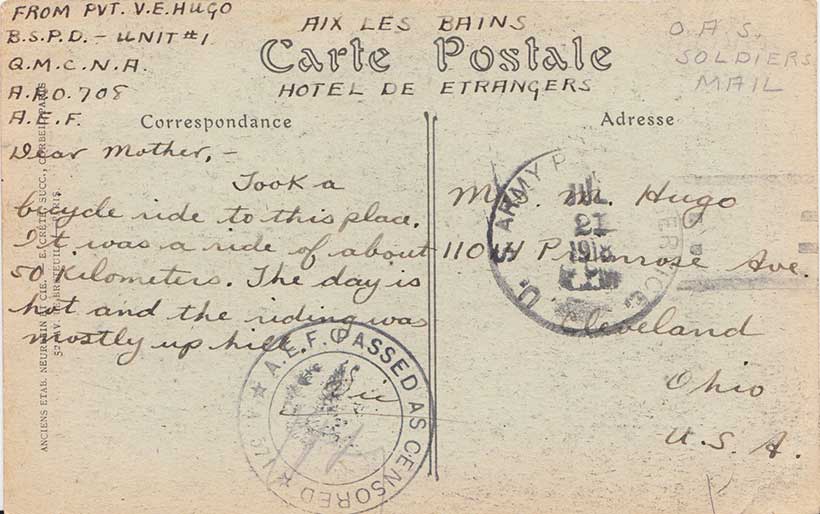 FROM PVT. V.E. HUGO
B.S.P.D. - UNIT #1
Q.M.C.N.A.
A.P.O. 708
A.E.F.
AIX LES BAINS
Carte Postale
HOTEL DE ETRANGERS
O.A.S.
SOLDIERS
MAIL
Correspondance
Adresse
Dear Mother, -
Took a
bicycle ride to this place.
It was a ride of about
50 Kilometers. The day is
hot and the riding was
mostly up hill.
Vic
M. Hugo
11014 Primrose Ave.
Cleveland
Ohio
U.S.A.
U.S. ARMY P SERVICE.
JUL
21
1918
A.E.F. PASSED AS CENSORED
ANCIENS ETAB. NEURDEIN ET CIE. E. CRÉTÉ, SUCC., CORBEIL-PARIS
52, AV. DE BRETEUIL, PARIS